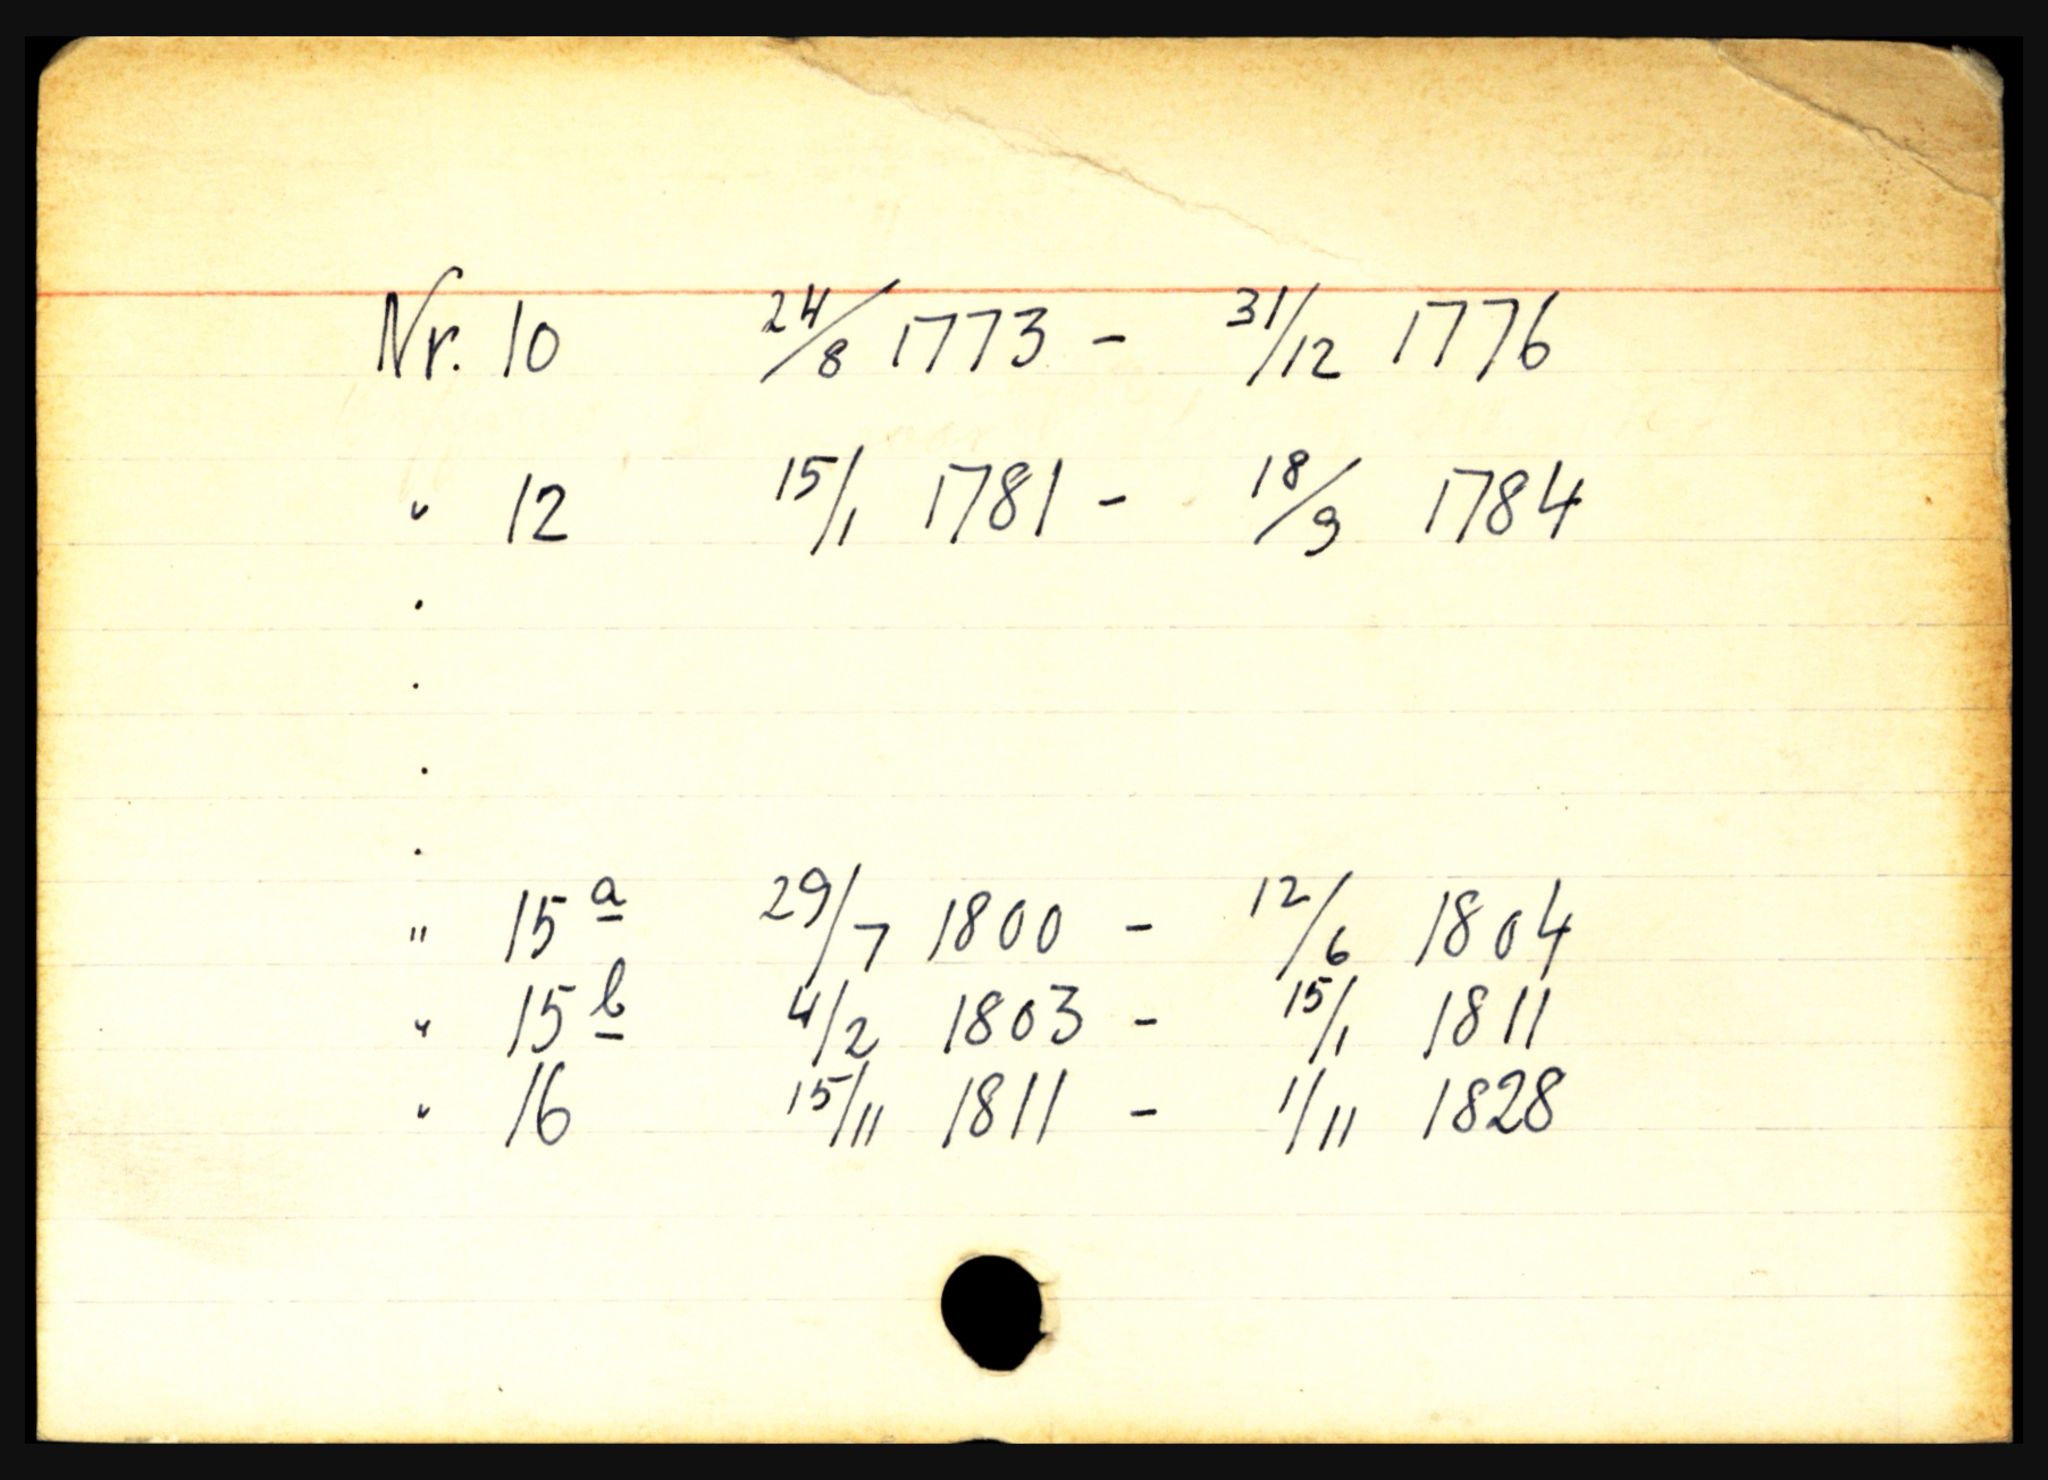 Nr. 10 24/8 1773 - 31/12 1776
" 12 15/1 1781 - 18/9 1784
.
.
.
.
" 15 a 29/7 1800 - 12/6 1804
" 15 b 4/2 1803 - 15/1 1811
" 16 15/11 1811 - 1/11 1828